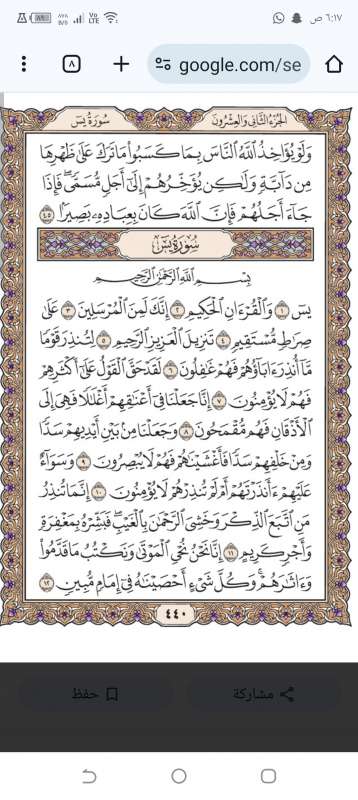 ٦:١٧ ص
google.com/se
٨
سُورَةُ يسٓ
الجُزْءُ الثَّانِي وَالعِشْرُونَ
وَلَوْ يُؤَاخِذُ ٱللَّهُ ٱلنَّاسَ بِمَا كَسَبُوا۟ مَا تَرَكَ عَلَىٰ ظَهْرِهَا
مِن دَآبَّةٍ وَلَٰكِن يُؤَخِّرُهُمْ إِلَىٰٓ أَجَلٍ مُّسَمًّى ۖ فَإِذَا
جَآءَ أَجَلُهُمْ فَإِنَّ ٱللَّهَ كَانَ بِعِبَادِهِۦ بَصِيرًۢا ٤٥
سُورَةُ يسٓ
بِسْمِ ٱللَّهِ ٱلرَّحْمَٰنِ ٱلرَّحِيمِ
يسٓ ١ وَٱلْقُرْءَانِ ٱلْحَكِيمِ ٢ إِنَّكَ لَمِنَ ٱلْمُرْسَلِينَ ٣ عَلَىٰ
صِرَٰطٍ مُّسْتَقِيمٍ ٤ تَنزِيلَ ٱلْعَزِيزِ ٱلرَّحِيمِ ٥ لِتُنذِرَ قَوْمًا
مَّآ أُنذِرَ ءَابَآؤُهُمْ فَهُمْ غَٰفِلُونَ ٦ لَقَدْ حَقَّ ٱلْقَوْلُ عَلَىٰٓ أَكْثَرِهِمْ
فَهُمْ لَا يُؤْمِنُونَ ٧ إِنَّا جَعَلْنَا فِىٓ أَعْنَٰقِهِمْ أَغْلَٰلًا فَهِىَ إِلَى
ٱلْأَذْقَانِ فَهُم مُّقْمَحُونَ ٨ وَجَعَلْنَا مِنۢ بَيْنِ أَيْدِيهِمْ سَدًّا
وَمِنْ خَلْفِهِمْ سَدًّا فَأَغْشَيْنَٰهُمْ فَهُمْ لَا يُبْصِرُونَ ٩ وَسَوَآءٌ
عَلَيْهِمْ ءَأَنذَرْتَهُمْ أَمْ لَمْ تُنذِرْهُمْ لَا يُؤْمِنُونَ ١٠ إِنَّمَا تُنذِرُ
مَنِ ٱتَّبَعَ ٱلذِّكْرَ وَخَشِىَ ٱلرَّحْمَٰنَ بِٱلْغَيْبِ ۖ فَبَشِّرْهُ بِمَغْفِرَةٍ
وَأَجْرٍ كَرِيمٍ ١١ إِنَّا نَحْنُ نُحْىِ ٱلْمَوْتَىٰ وَنَكْتُبُ مَا قَدَّمُوا۟
وَءَاثَٰرَهُمْ ۚ وَكُلَّ شَىْءٍ أَحْصَيْنَٰهُ فِىٓ إِمَامٍ مُّبِينٍ ١٢
٤٤٠
مشاركة
حفظ